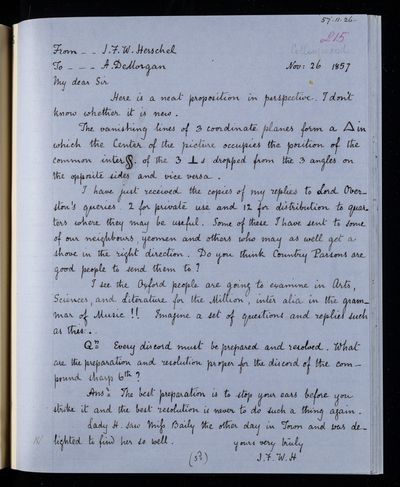 57.11.26.
215
Collingwood
From _ _ J.F.W. Herschel
To _ _ _ A. DeMorgan Nov: 26 1857
My dear Sir
Here is a neat proposition in perspective. I don't
know whether it is new.
The vanishing lines of 3 coordinate planes form a △ in
which the Center of the picture occupies the position of the
common inter§. of the 3 ⊥s dropped from the 3 angles on
the opposite sides and vice versa.
I have just received the copies of my replies to Lord Over-
ston's queries. 2 for private use and 12 for distribution to quar-
ters where they may be useful. Some of these I have sent to some
of our neighbours, yeomen and others who may as well get a
shove in the right direction. Do you think Country Parsons are
good people to send them to?
I see the Oxford people are going to examine in Arts,
Sciences, and Literature for the Million, inter alia in the gram-
mar of Music !! Imagine a set of questions and replies such
as this.
Qn. Every discord must be prepared and resolved. What
are the preparation and resolution proper for the discord of the com-
pound sharp 6th?
Ansr. The best preparation is to stop your ears before you
strike it and the best resolution is never to do such a thing again.
Lady H. saw Miss Baily the other day in Town and was de-
lighted to find her so well. yours very truly
J.F.W.H